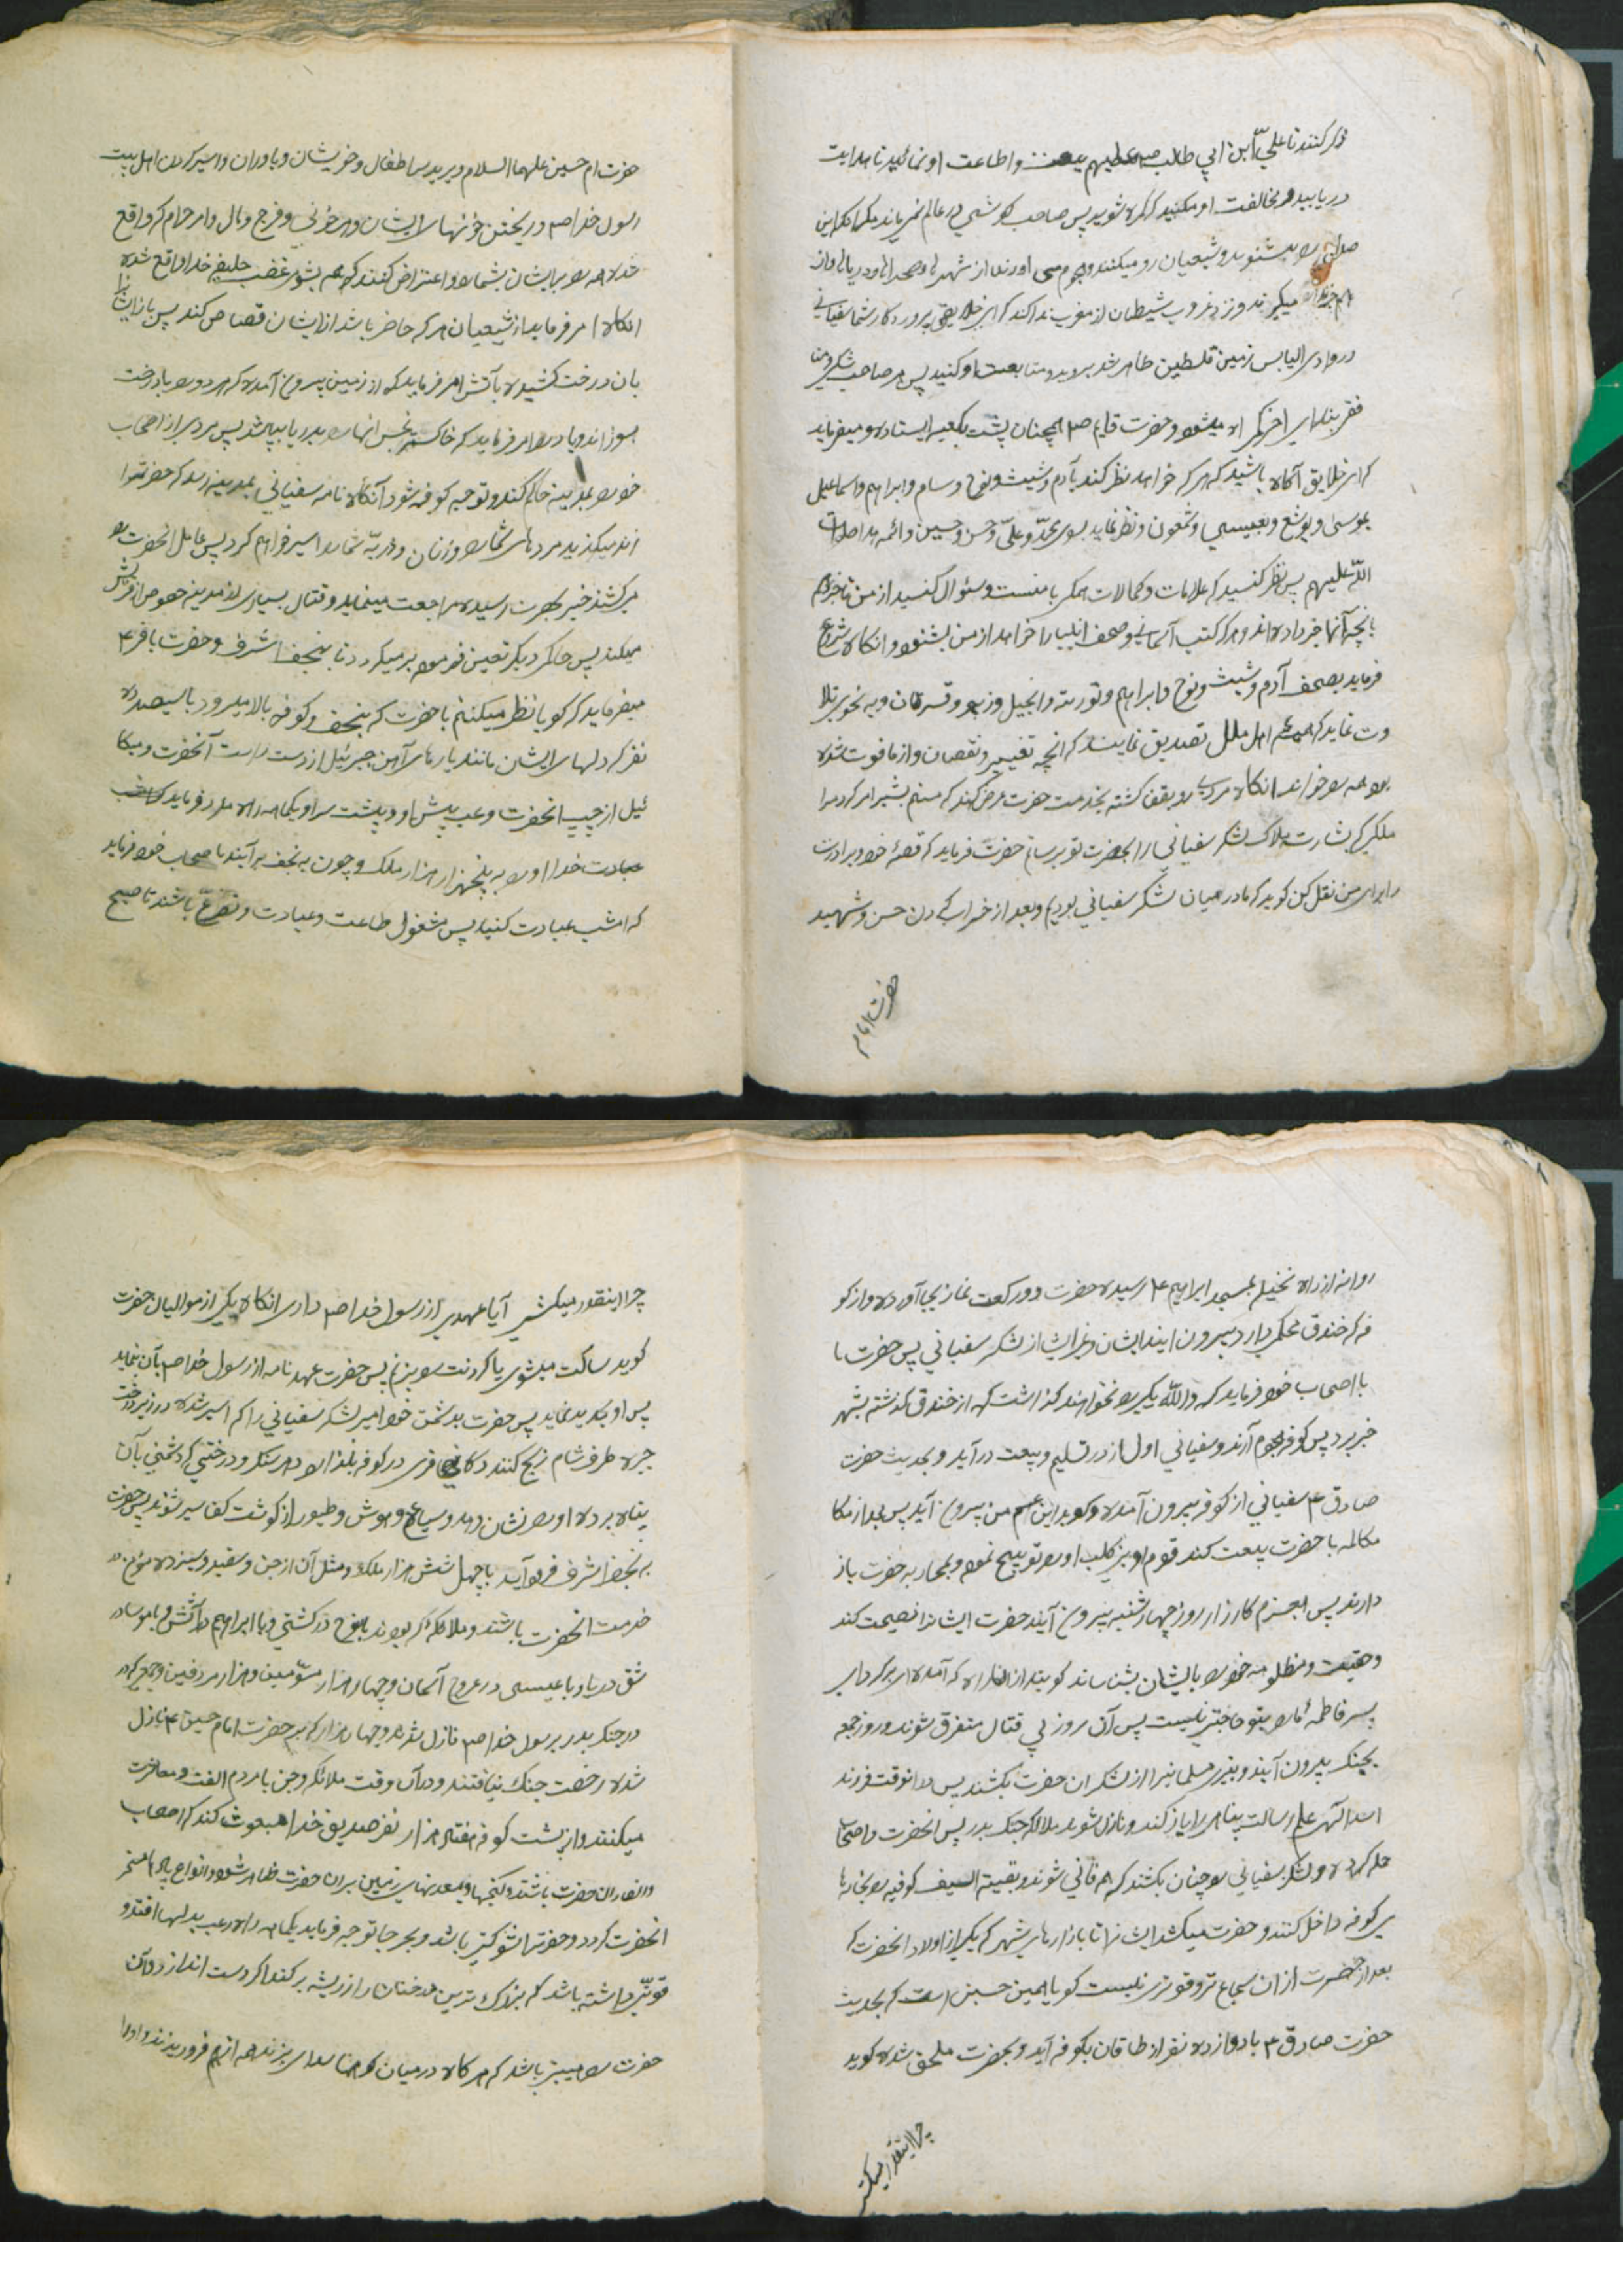 ذکر کنند تا علیّ ابن ابی طالب ص علیهم بیعت و اطاعت او نمائید تا هدایت
دریابید و مخالفت او مکنید که گمراه شوید پس صاحب گوشی در عالم نمیماند مگر آنکه این
صدا را بشنوید و شیعیان رو میکنند و هجوم می آورند از شهرها و صحراها و دریاها و از
میگیرند و نزد غروب شیطان از مغرب ندا کند که ای خلایق پروردگار شما سفیانی
در وادی الیابس زمین فلسطین ظاهر شد بروید و متابعت او کنید پس هر صاحب شکی و منا
فقی بندای اخر گمراه میشود و حضرت قایم ص همچنان پشت بکعبه ایستاده و میفرماید
که ای خلایق آگاه باشید که هر که خواهد نظر کند بآدم و شیث و نوح و سام و ابراهیم و اسماعیل
بموسی و یوشع و بعیسی و شمعون و نظر نماید بسوی محمّد و علیّ و حسن و حسین و ائمه هدا صلوات
اللّه علیهم پس نظر کنید که علامات و کمالات همگی با منست و سئوال کنید از من تا خبر دهم
بانچه آنها خبر داده اند و هر که کتب آسمانی و صحف انبیا را خواهد از من بشنود و انگاه شروع
فرماید بصحف آدم و شیث و نوح و ابراهیم و توریته و انجیل و زبور و قرآن و به نحوی تلا
وت نماید که همه اهل ملل تصدیق نمایند که انچه تغییر و نقصان و از ما فوت شده
بود همه را خواند انگاه مردی رو بقفا گشته بخدمت حضرت عرض کند که منم بشیر امر کرد مرا
ملکی که بشارت هلاک لشکر سفیانی را بحضرت تو برسانم حضرت فرماید که قصّه خود و برادرت
را برای من نقل کن گوید که ما در میان لشکر سفیانی بودیم و بعد از خراب کردن حسن و شهید
حضرت امام
حضرت امام حسین علیهما السلام و بریدن سر اطفال و خویشان و یاوران و اسیر کردن اهل بیت
رسول خدا ص و ریختن خونهای ایشان و هر خونی و فرج و مال و امر حرام که واقع
شده همه را بر ایشان بشمارد و اعتراض کنند که همه بشومی غضب خلیفه خدا واقع شده
انگاه امر فرماید از شیعیان هر که حاضر باشد از ایشان قصاص کند پس باز ایشان را
بان درخت کشیده بآتش امر فرماید که از زمین بیرون آمده که هر دو را با درخت
بسوزاند و باد را امر فرماید که خاکستر نجس انها را بدریا بپاشد پس مردی از اصحاب
خود را بمدینه حاکم کند و توجیه کوفه شود آنگاه نامه سفیانی بمدینه رسد که حضرت را
اند میکنید مردهای شما را و زنان و ذریّه شما را اسیر خواهم کرد پس عامل انحضرت را
بکشند خبر بحضرت رسیده مراجعت مینماید و قتال بسیاری از مدینه خصوص از قریش
میکند پس حاکم دیگر تعیین فرموده بر میگردد تا بنجف اشرف و حضرت باقر ۴
میفرماید که گویا نظر میکنم باحضرت که بنجف و کوفه بالا میرود با سیصد و ده
نفر که دلهای ایشان مانند پارهای آهن جبرئیل از دست راست آنحضرت و میکا
ئیل از چپ انحضرت و عب پیش او و پشت سر او یکماهه راه رود فرماید که امشب
عبادت خدا او را به پنجهزار هزار ملک و چون به نجف برآیند باصحاب خود فرماید
که امشب عبادت کنید پس مشغول طاعت و عبادت و تضرّع باشند تا صبح
روانه از راه نخیله بمسجد ابراهیم ۴ رسیده حضرت دو رکعت نماز بجا آورده و از کو
فه که خندق محکمی دارد بیرون ایند ایشان و غیر ایشان از لشکر سفیانی پس حضرت
با اصحاب خود فرماید که واللّه یکی را نخواهند گذاشت که از خندق گذشته بشهر
خبر برد پس کوفه هجوم آرند و سفیانی اول از در تسلیم و بیعت در آید و بحدیث حضرت
صادق ۴ سفیانی از کوفه بیرون آمده و گوید این عم من بیرون آید پس بعد از مکا
مکالمه با حضرت بیعت کند قوم او بنی کلب او را توبیخ نموده و بمحاربه حضرت باز
دارند پس بعزم کارزار روز چهارشنبه بیرون آیند حضرت ایشان را نصیحت کند
و حقیقت و مظلومیه خود را بایشان بشناساند گویند از انراه که آمده ای برگرد ای
پسر فاطمه که ما را بتو حاجتی نیست پس آن روز بی قتال متفرق شوند و روز جمعه
بجنگ بیرون آیند و بتیری مسلمانی را از لشکران حضرت بکشند پس در انوقت فرزند
اسد اللّه علم رسالت پناهی را باز کند و نازل شوند ملائکه جنگ بدر پس انحضرت و اصحاب
حمله کرده و لشکر سفیانی را چنان بکشند که همه فانی شوند و بقیته السیف کوفیه را بخانه ها
ی کوفه داخل کنند و حضرت میکشد ایشان را تا بازارهای شهر که یکی از اولاد انحضرت که
بعد از حضرت از ان شجاع تر و قویتر نیست گویا همین حسین است که بحدیث
حضرت صادق ۴ با دوازده نفر از طاقان بکوفه آید و بحضرت ملحق شده گوید
چرا اینقدر میکشی
چرا اینقدر میکشی آیا عهدی از رسول خدا ص داری انگاه یکی از موالیان حضرت
گوید ساکت میشوی یا گردنت را بزنم پس حضرت عهد نامه از رسول خدا ص بآن نماید
پس او بگرید نماید پس حضرت بدشمن خود امیر لشکر سفیانی را که اسیر شده در زیر درخت
جره طرف شام ذبح کنند و کافری در کوفه بلند الا در هر سنگ و درختی که دشمنی بآن
پناه برده او را نشان دهد و سباع و وحوش و طیور از گوشت کفا سیر شوند پس حضرت
به نجف اشرف فرود آید با چهل شش هزار ملک و مثل آن از جن و سفید و سیزده مؤمن در
خدمت انحضرت باشند و ملائکه که بودند با نوح در کشتی و با ابراهیم در آتش و با موسی در
شق دریا و با عیسی در عروج آسمان و چهار هزار مسوّمین و هزار مردفین و جمعی که در
در جنگ بدر برسول خدا ص نازل شدند و چهار هزار که بر حضرت امام حسین ۴ نازل
شده رخصت جنگ نیافتند و در آن وقت ملائکه و جن با مردم الفت و معاشرت
میکنند و از پشت کوفه هفتاد هزار نفر صدیق خدا مبعوث کند که اصحاب
و انصار ان حضرت باشند و گنجها و معدنهای زمین بر ان حضرت ظاهر شود و انواع باد ها مسخر
انحضرت گردد و حضرت را شوکتی باشد و بهر جا توجه فرماید یکماهه راه رعب بدلها افتد و
قوتی داشته باشد که بزرک ترین درختان را از ریشه بر کند اگر دست اندازد و آن
حضرت را هیبتی باشد که هر گاه در میان کوهها صدای بزند همه از هم فرو ریزند و او را